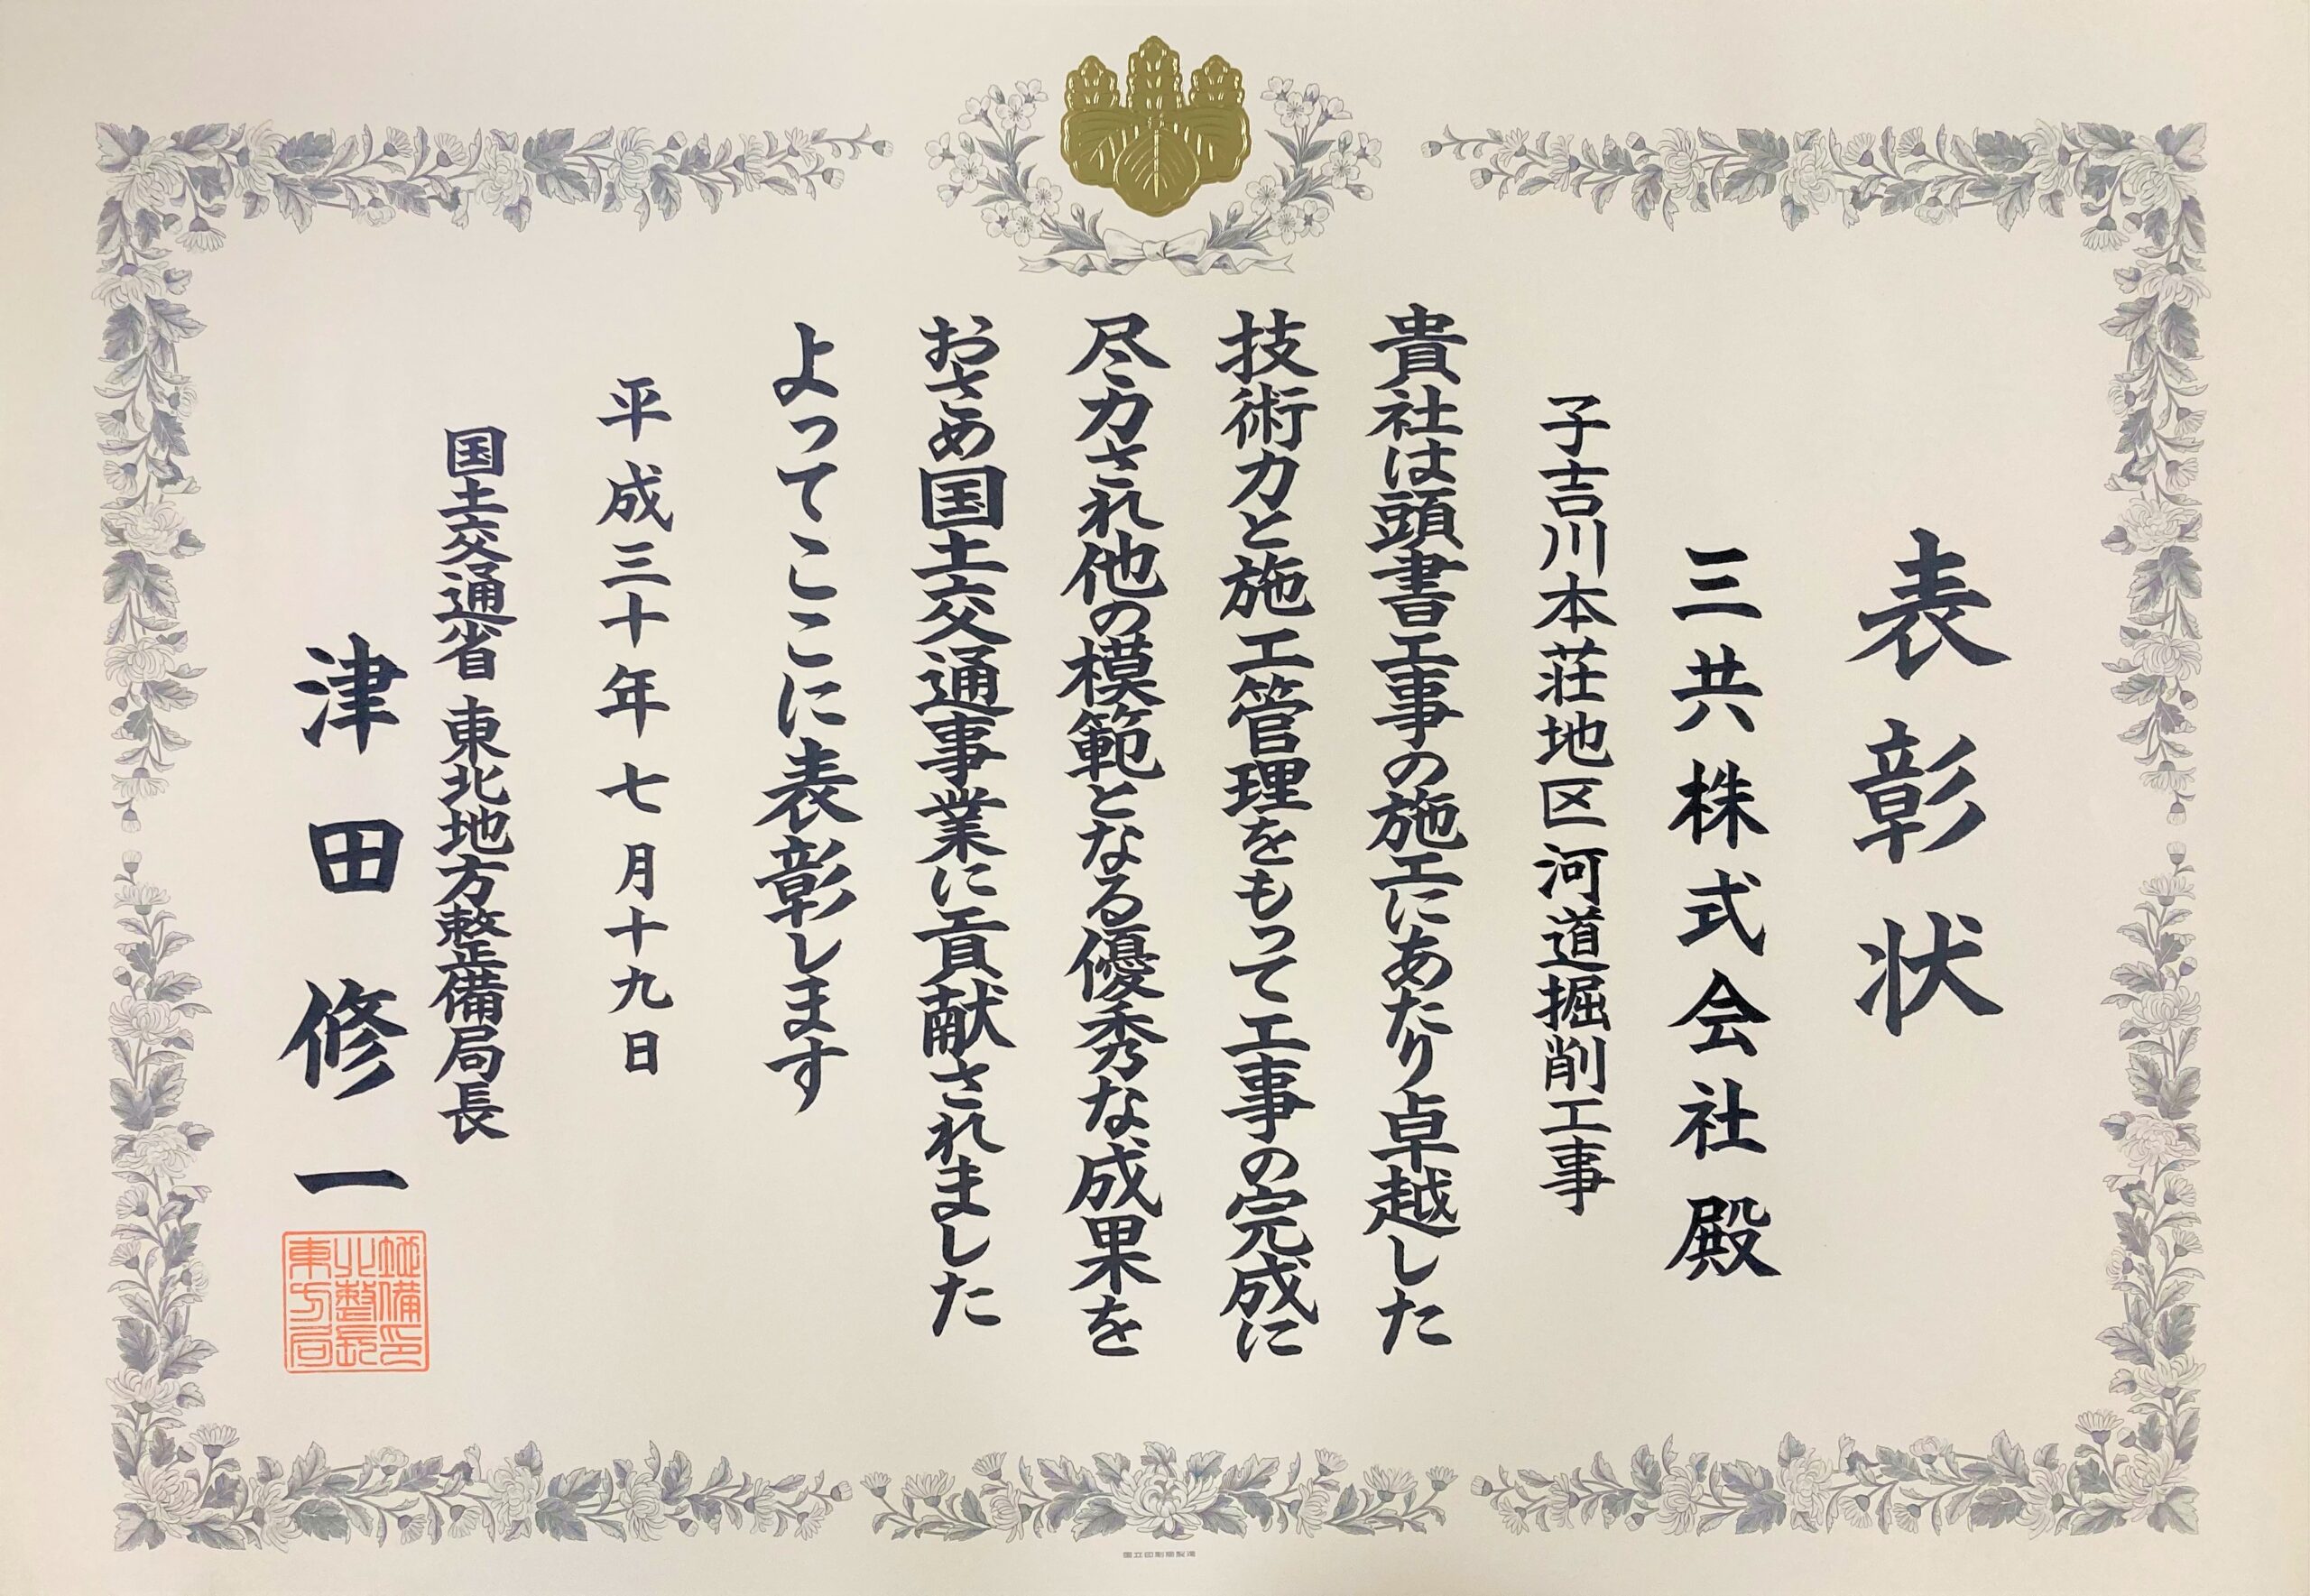 表彰状
三共株式会社殿
子吉川本荘地区河道掘削工事
貴社は頭書工事の施工にあたり卓越した
技術力と施工管理をもって工事の完成に
尽力され他の模範となる優秀な成果を
おさめ国土交通事業に貢献されました
よってここに表彰します
平成三十年七月十九日
国土交通省 東北地方整備局長
津田修一
国立印刷局製造